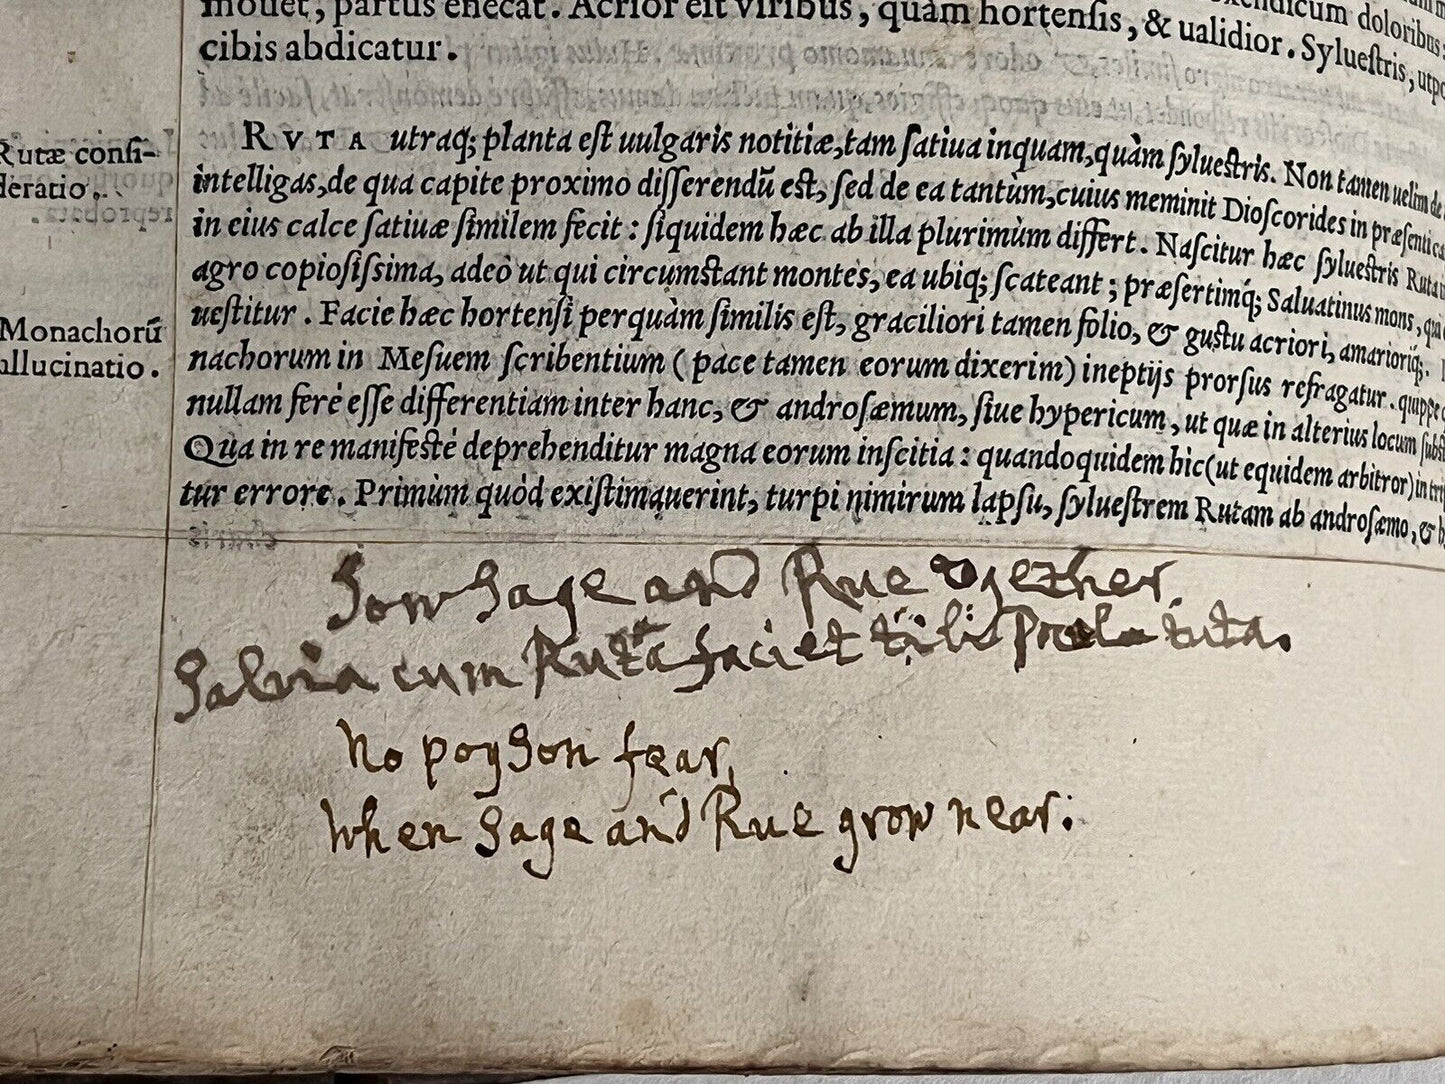 mouet, partus enecat. Acrior est viribus, quàm hortensis, & ualidior. Syluestris, utpo
cibis abdicatur.
Rutæ consi-
deratio.
RVTA utraq; planta est uulgaris notitiæ, tam satiua inquam, quàm syluestris. Non tamen uelim de
intelligas, de qua capite proximo disserendũ est, sed de ea tantùm, cuius meminit Dioscorides in præsenti ca
in eius calce satiuæ similem fecit: siquidem hæc ab illa plurimùm differt. Nascitur hæc syluestris Ruta
agro copiosissima, adeò ut qui circumstant montes, ea ubiq; scateant; præsertimq́; Saluatinus mons, qui
uestitur. Facie hæc hortensi perquàm similis est, graciliori tamen folio, & gustu acriori, amarioriq́;.
Monachorũ
allucinatio.
nachorum in Mesuem scribentium (pace tamen eorum dixerim) ineptijs prorsus refragatur. quippe
nullam ferè esse differentiam inter hanc, & androsæmum, siue hypericum, ut quæ in alterius locum subst
Qua in re manifestè deprehenditur magna eorum inscitia: quandoquidem hic (ut equidem arbitror) in tri
tur errore. Primùm quòd existimauerint, turpi nimirum lapsu, syluestrem Rutam ab androsæmo, & h
Sow Sage and Rue together,
Salvia cum Ruta faciet tibi Pocula tuta.
No poyson fear,
When Sage and Rue grow near: